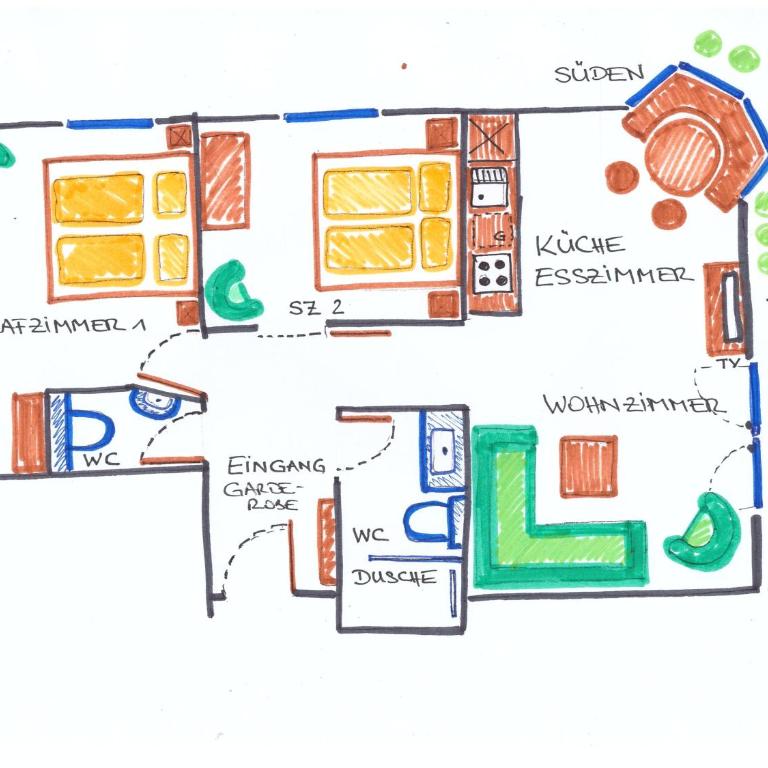 SÜDEN
KÜCHE
ESSZIMMER
G
SZ 2
AFZIMMER 1
TV
WOHNZIMMER
WC
EINGANG
GARDE-
ROBE
WC
DUSCHE